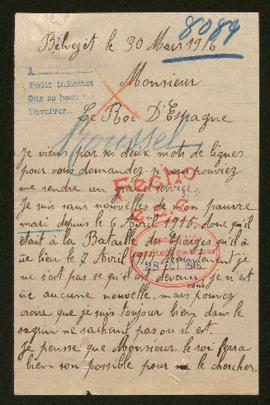 8084
Belvezet le 30 Mars 1916
Monsieur
Le Roi D'Espagne
A
Pedir informes
Que se hace
Devolver
Roussel
Je viens par ses deux mots de lignes
pour vous demandez si vous pouviez
me rendre un grand service.
Je suis sans nouvelles de mon pauvre
mari depuis le 5 Avril 1915, donc qu'il
était à la Bataille des Eparges qu'il à
ue lieu le Avril 1915 et maintenant je
ne s'est pas se qu'il est devenu je n'est
ue aucune nouvelle, mais vous pouvez
croire que je suis toujour bien dans le
sagrin ne sachant pas ou il est.
Je pensse que Monsieur le roi ferra
bien son possible pour me le chercher
Fecho